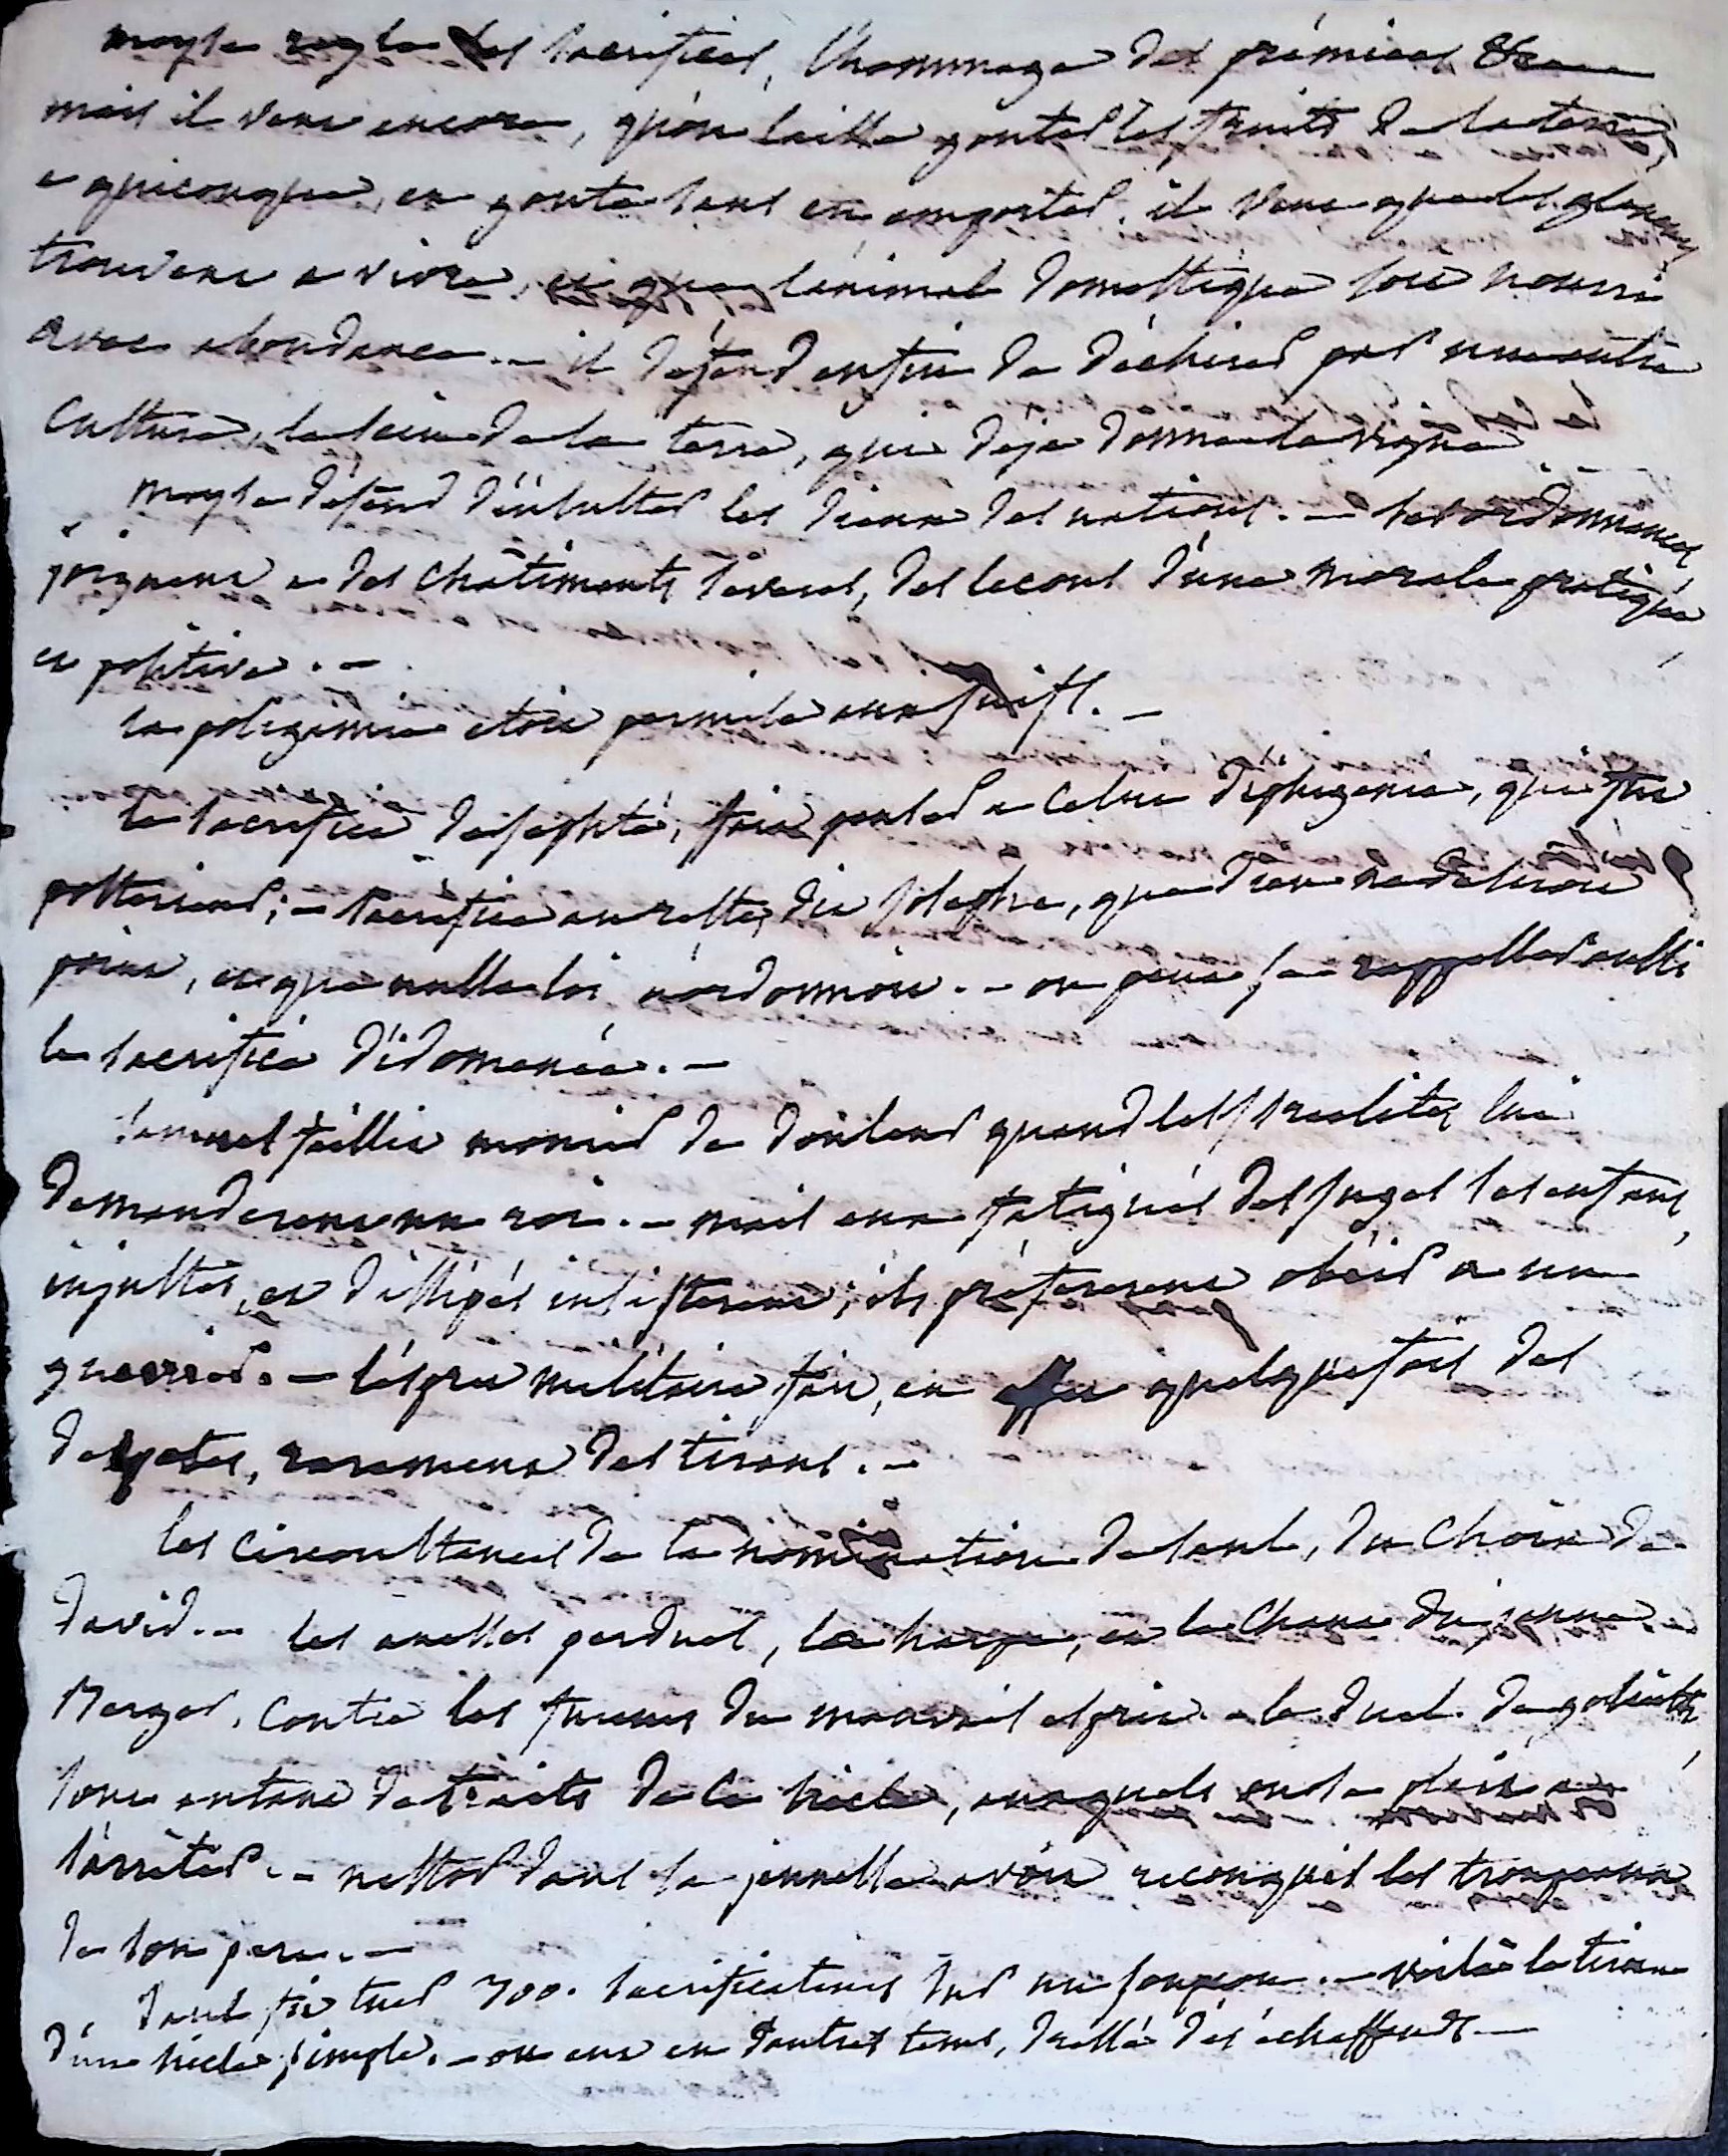 moyse regla les sacrifices, l'hommage des prémices &c
mais il veut encore, qu'on laisse gouter les fruits de la terre,
a quiconque, en goute sans en emporter. il veut que les glaneurs
trouvent a vivre, et que l'animal domestique soit nourri
avec abondance. — il défend enfin de déchirer par une autre
culture, le sein de la terre, qui déja donne la vigne
moyse défend d'insulter les dieux des nations. — ses ordonnances
joignent a des châtiments severes, des lecons d'une morale pratique
et positive. —
la poligamie etoit permise aux juifs. —
le sacrifice de jephté, fait penser a celui d'iphigenie, qui fut
posterieur; — sacrifice au reste, dit josephe, que dieu ne desiroit
point, et que nulle loi n'ordonnoit. — on peut se rappeller aussi
le sacrifice d'idomenée. —
samuel faillit mourir de douleur quand les israelites lui
demanderent un roi. — mais eux fatigués des juges ses enfans,
injustes, et dissipés insisterent; ils préfererent obéir a un
guerrier. — l'esprit militaire fait, en quelquefois des
despotes, rarement des tirans. —
les circonstances de la nomination de saul, du choix de
david. — les anesses perdues, la harpe, et le chant du jeune
berger, contre les fureurs du mauvais esprit. — le duel de goliath,
sont autant de traits de ce siecle, auxquels on se plait a
s'arrêter. — nestor dans sa jeunesse avoit reconquis les troupeaux
de son pere. —
saul fit tuer 300. sacrificateurs sur un soupçon. — voilà le tiran
d'un siecle simple. — on eut en d'autres tems, dressé des échaffauds —